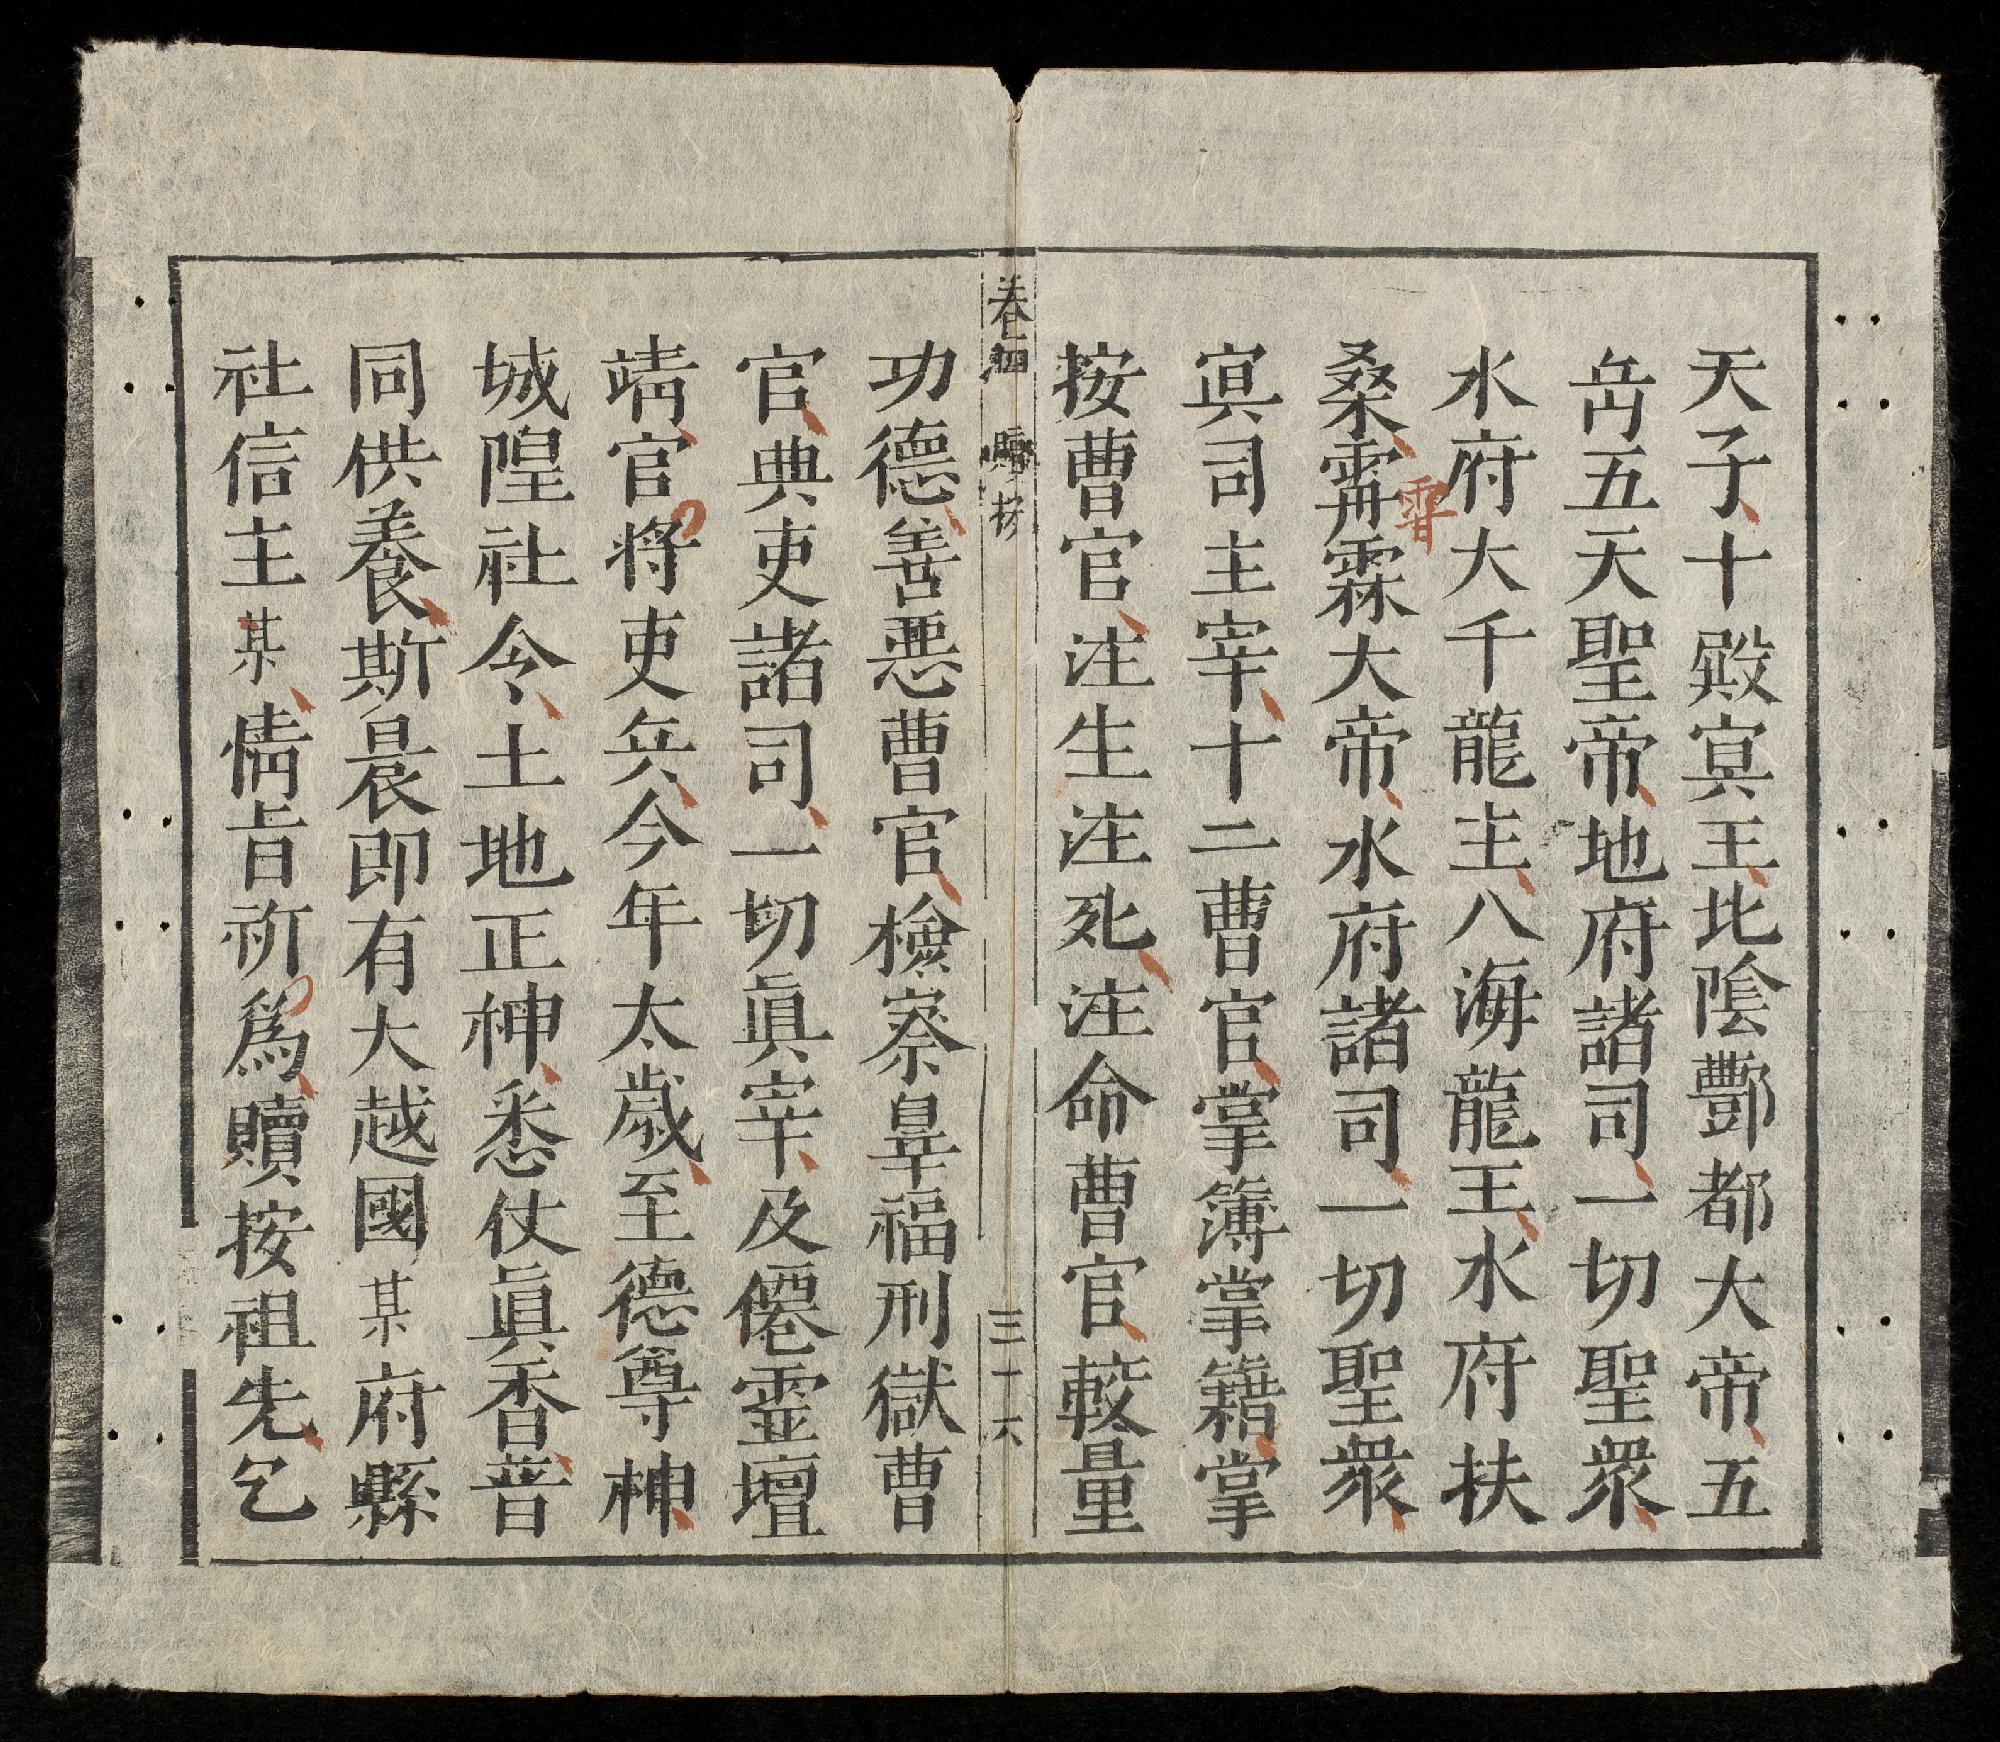 天子十殿冥王北陰酆都大帝五
岳五天聖帝地府諸司一切聖衆
水府大千龍主八海龍王水府扶
桑霈霖大帝水府諸司一切聖衆
冥司主宰十二曹官掌簿掌籍掌
按曹官注生注死注命曹官較量
卷四 贖按 三十六
功德善惡曹官檢察辠福刑獄曹
官典吏諸司一切眞宰及僊靈壇
靖官將吏兵今年太歲至德尊神
城隍社令土地正神悉仗眞香普
同供養斯晨即有大越國某府縣
社信主某情旨祈爲贖按祖先乞